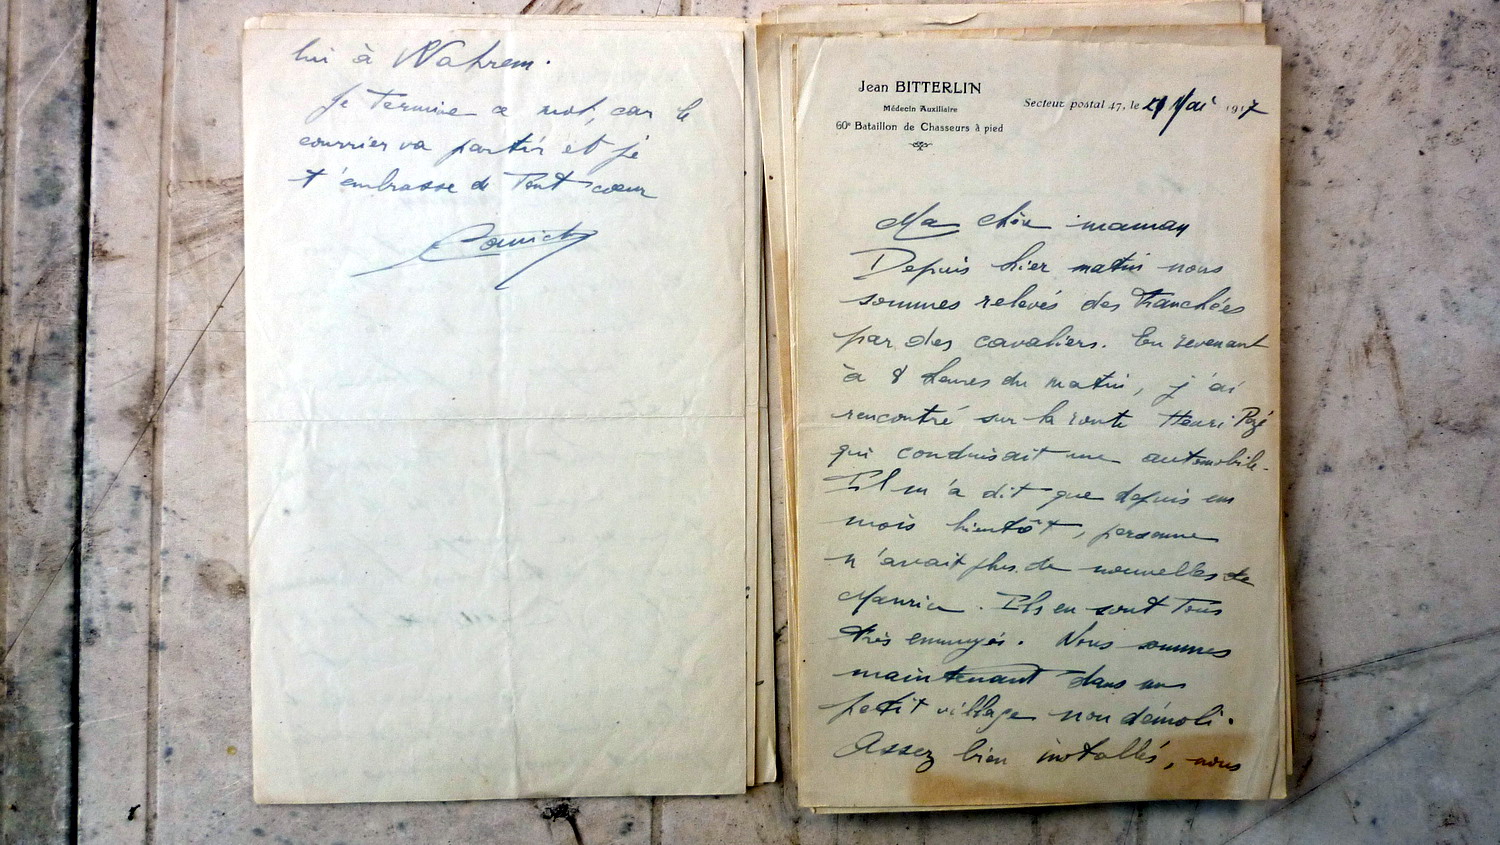 lui à Wahrem.
Je termine ce mot, car le
courrier va partir et je
t'embrasse de tout cœur
Jean BITTERLIN
Médecin Auxiliaire
60e Bataillon de Chasseurs à pied
Secteur postal 47, le Mai 1917
Ma chère maman
Depuis hier matin nous
sommes relevés des tranchées
par des cavaliers. En revenant
à 8 heures du matin, j'ai
rencontré sur la route Henri
qui conduisait une automobile.
Il m'a dit que depuis un
mois bientôt, personne
n'avait plus de nouvelles de
Maurice. Ils en sont tous
très ennuyés. Nous sommes
maintenant dans un
petit village non démoli.
Assez bien installés, nous